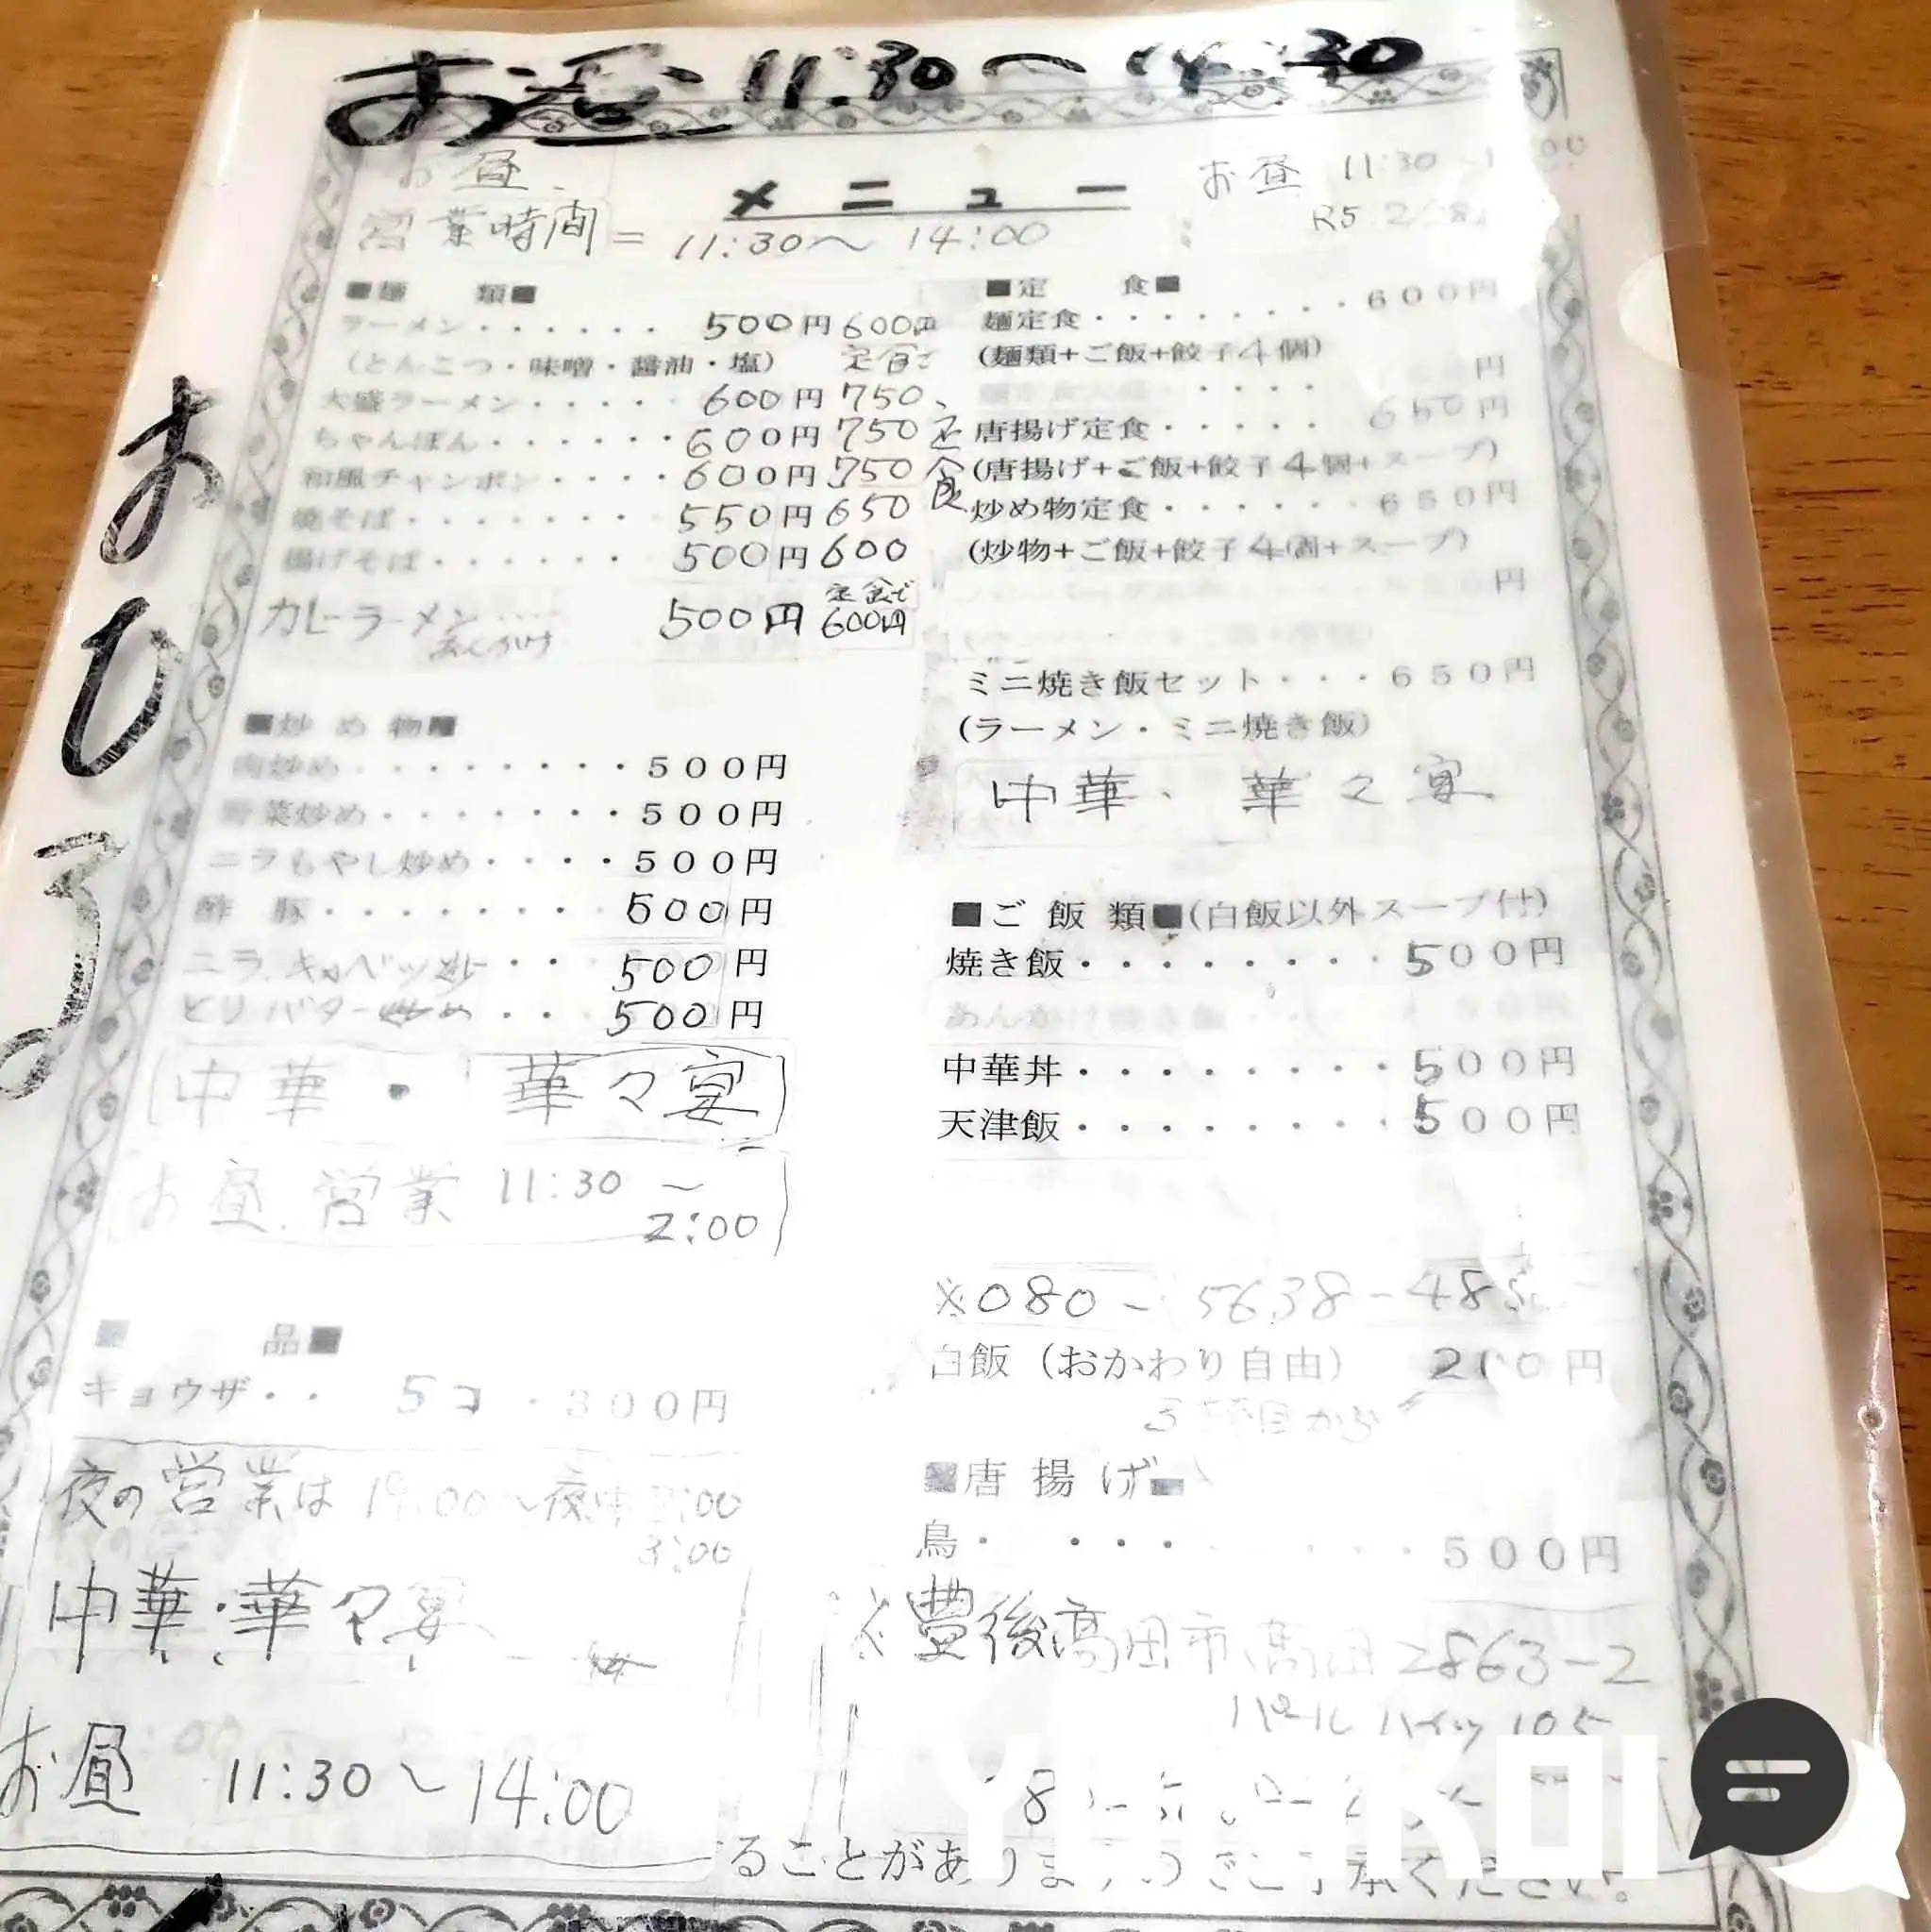 お昼 11:30〜14:30
おひる
お昼
メニュー
お昼 11:30
営業時間=11:30〜14:00
■麺 類■
ラーメン・・・・・・500円 600円
(とんこつ・味噌・醤油・塩) 定食で
大盛ラーメン・・・・・600円 750
ちゃんぽん・・・・・・600円 750
和風チャンポン・・・・600円 750
焼そば・・・・・・・550円 650
揚げそば・・・・・・500円 600
定食
カレーラーメン・・・・500円 定食で600円
あんかけ
■炒め物■
肉炒め・・・・・・・・500円
野菜炒め・・・・・・・500円
ニラもやし炒め・・・・500円
酢 豚・・・・・・・・600円
ニラ、キャベツ炒・・500円
とりバター炒め・・・500円
中華・華々宴
お昼、営業 11:30〜
2:00
品■
ギョウザ・・ 5コ・300円
夜の営業は19:00〜夜中
3:00
中華・華々宴
お昼 11:30〜14:00
■定 食■
麺定食・・・・・・・・600円
(麺類+ご飯+餃子4個)
円
唐揚げ定食・・・・・650円
(唐揚げ+ご飯+餃子4個+スープ)
炒め物定食・・・・・・650円
(炒物+ご飯+餃子4個+スープ)
円
ミニ焼き飯セット・・・650円
(ラーメン・ミニ焼き飯)
中華、華々宴
■ご飯類■(白飯以外スープ付)
焼き飯・・・・・・・・500円
あんかけ焼き飯
中華丼・・・・・・・・500円
天津飯・・・・・・・・500円
※080-5638-48
白飯(おかわり自由) 200円
■唐揚げ■
鳥・・・・・500円
豊後高田市高田2863-2
パールハイツ105
ることがありますのでご了承ください。